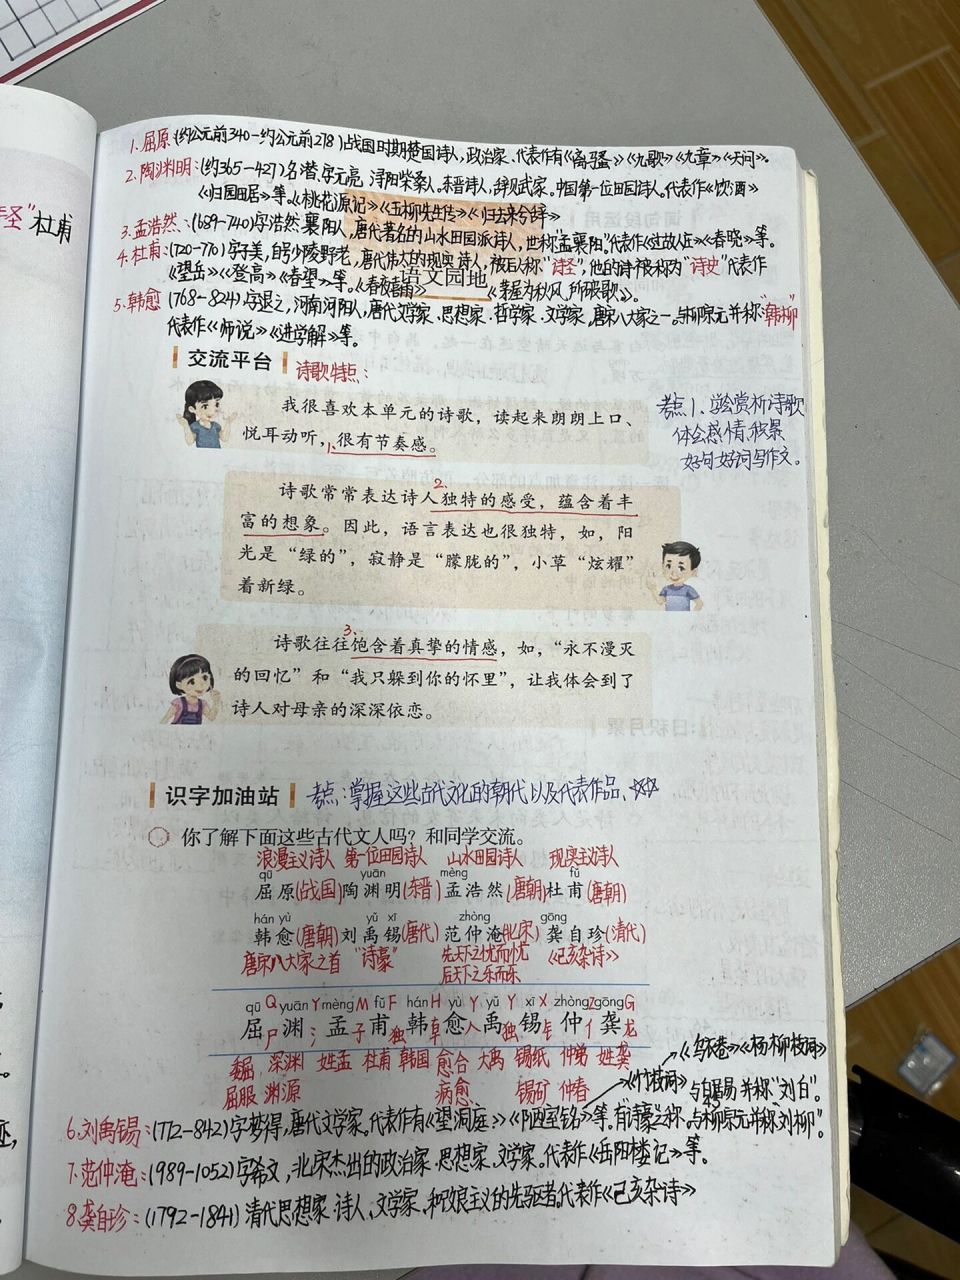 1.屈原(约公元前340-约公元前278)战国时期楚国诗人,政治家、代表作有《离骚》《九歌》《九章》《天问》。
2.陶渊明:(约365-427)名潜,字元亮,浔阳柴桑人,东晋诗人,辞赋家,中国第一位田园诗人,代表作《饮酒》
《归园田居》等、《桃花源记》《五柳先生传》《归去来兮辞》
3.孟浩然、(689-740)字浩然襄阳人,唐代著名的山水田园派诗人,世称"孟襄阳"代表作《过故人庄》《春晓》等。
4.杜甫:(720-770)字子美,自号少陵野老,唐代伟大的现实诗人,被后人称"诗圣",他的诗被称为"诗史"代表作
圣"杜甫
《望岳》《登高》《春望》等。《春夜喜雨》《茅屋为秋风所破歌》。
语文园地
5.韩愈(768-824)字退之,河南河阳人,唐代文学家、思想家、哲学家、文学家,唐宋八大家之一。与柳宗元并称"韩柳"
代表作《师说》《进学解》等。
交流平台 诗歌特点:
我很喜欢本单元的诗歌,读起来朗朗上口、
悦耳动听,1、很有节奏感。
考点1、学会赏析诗歌
体会感情,积累
好句好词写作文。
2.
诗歌常常表达诗人独特的感受,蕴含着丰
富的想象。因此,语言表达也很独特,如,阳
光是"绿的",寂静是"朦胧的",小草"炫耀"
着新绿。
3、
诗歌往往饱含着真挚的情感,如,"永不漫灭
的回忆"和"我只躲到你的怀里",让我体会到了
诗人对母亲的深深依恋。
识字加油站 考点:掌握这些古代文化的朝代以及代表作品、☆☆
你了解下面这些古代文人吗?和同学交流。
浪漫主义诗人 第一位田园诗人 山水田园诗人 现实主义诗人
qū yuān mèng fǔ
屈原(战国)陶渊明(东晋)孟浩然(唐朝)杜甫(唐朝)
hán yù yǔ xī zhòng gōng
韩愈(唐朝)刘禹锡(唐代)范仲淹(北宋)龚自珍(清代)
唐宋八大家之首 "诗豪" 先天下之忧而忧 《己亥杂诗》
后天下之乐而乐
qū Q yuān Y mèng M fǔ F hán H yù Y yǔ Y xī X zhòng Z gōng G
屈尸渊氵孟子甫韩愈人禹锡钅仲亻龚龙
委屈 深渊 姓孟 杜甫 韩国 愈合 大禹 锡纸 仲弟 姓龚
屈服 渊源 病愈 锡矿 仲春
《乌衣巷》《杨柳枝词》
《竹枝词》 与白居易并称"刘白"。
6.刘禹锡:(772-842)字梦得,唐代文学家。代表作有《望洞庭》《陋室铭》等。有"诗豪"之称,与柳宗元并称"刘柳"。
7.范仲淹:(989-1052)字希文,北宋杰出的政治家、思想家、文学家。代表作《岳阳楼记》等。
8.龚自珍:(1792-1841)清代思想家、诗人、文学家,和改良主义的先驱者,代表作《己亥杂诗》